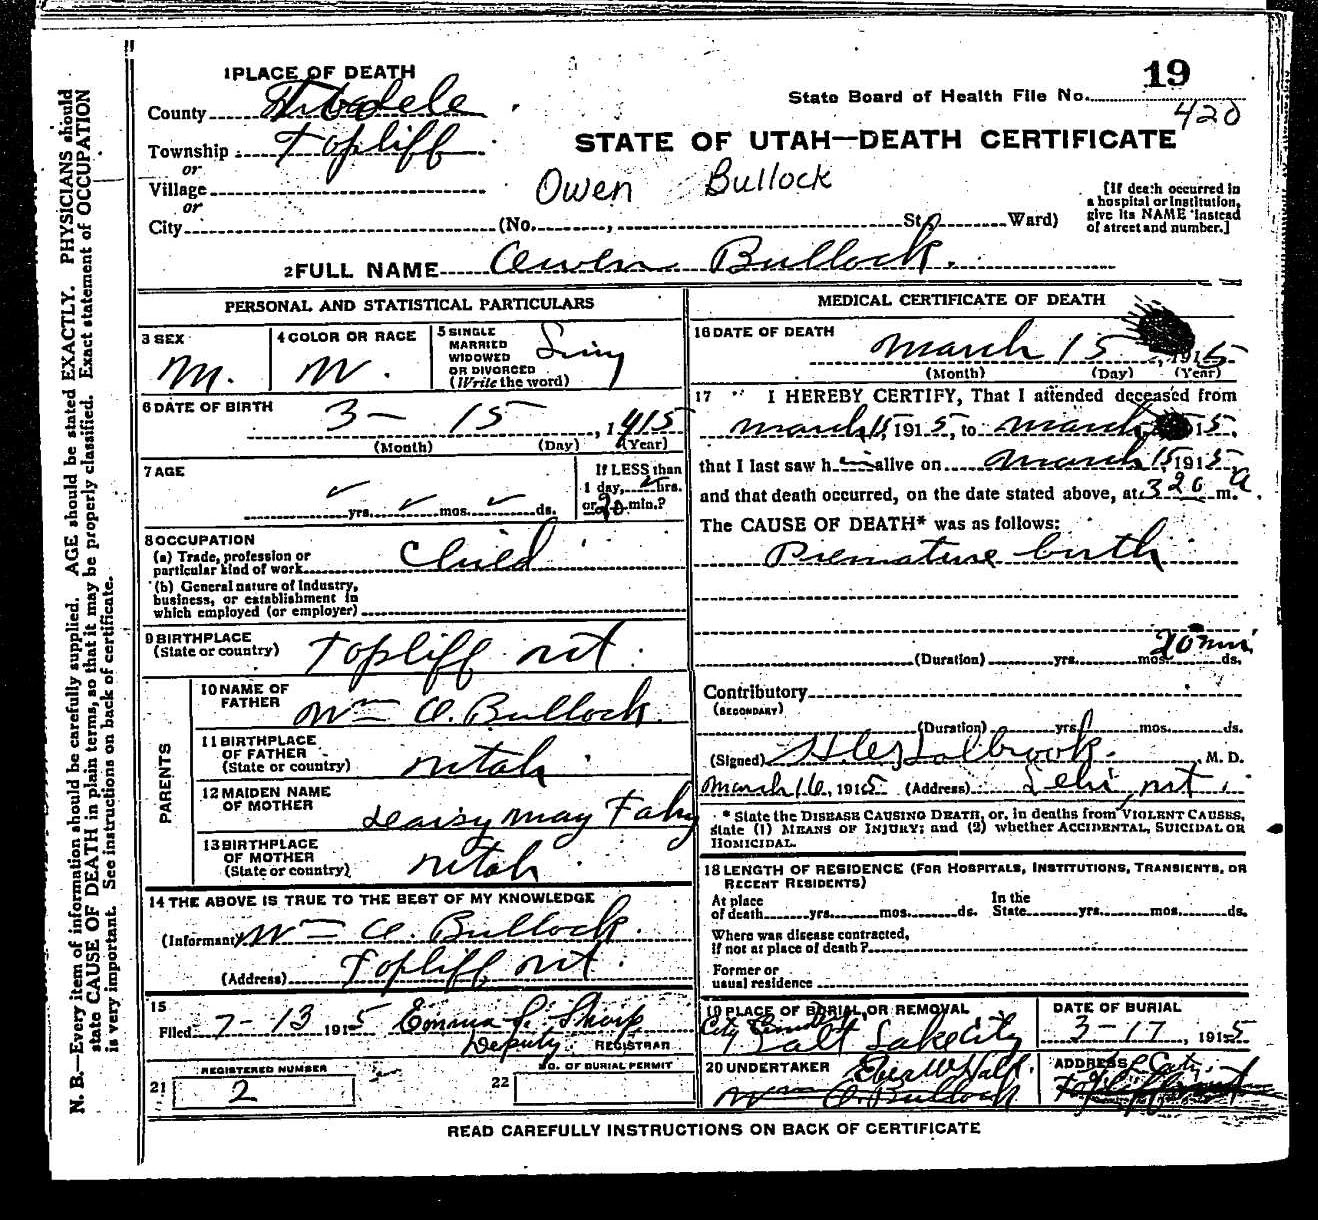 1 PLACE OF DEATH
19
County Tooele
State Board of Health File No.
420
Township Topliff
STATE OF UTAH—DEATH CERTIFICATE
or
Village
Owen Bullock
[If death occurred in a hospital or institution, give its NAME instead of street and number.]
or
City (No. , St., Ward)
2 FULL NAME Owen Bullock.
PERSONAL AND STATISTICAL PARTICULARS
3 SEX
M.
4 COLOR OR RACE
W.
5 SINGLE
MARRIED
WIDOWED
OR DIVORCED
(Write the word)
6 DATE OF BIRTH
3— 15 , 1915
(Month) (Day) (Year)
7 AGE
yrs. mos. ds.
If LESS than
1 day, hrs.
or 20 min.?
8 OCCUPATION
(a) Trade, profession or
particular kind of work Child
(b) General nature of industry,
business, or establishment in
which employed (or employer)
9 BIRTHPLACE
(State or country) Topliff ut.
PARENTS
10 NAME OF
FATHER Wm O. Bullock.
11 BIRTHPLACE
OF FATHER
(State or country) Utah.
12 MAIDEN NAME
OF MOTHER Daisy May
13 BIRTHPLACE
OF MOTHER
(State or country) Utah.
14 THE ABOVE IS TRUE TO THE BEST OF MY KNOWLEDGE
(Informant) Wm O. Bullock.
(Address) Topliff ut.
15
Filed 7-13 1915 Emma Sharp
Deputy REGISTRAR
REGISTERED NUMBER
21 2
NO. OF BURIAL PERMIT
22
MEDICAL CERTIFICATE OF DEATH
16 DATE OF DEATH
March 15, 1915
(Month) (Day) (Year)
17 I HEREBY CERTIFY, That I attended deceased from
March 15, 1915, to March 1915,
that I last saw him alive on March 15 1915
and that death occurred, on the date stated above, at 320 a m.
The CAUSE OF DEATH* was as follows:
Premature birth
20 min
(Duration) yrs. mos. ds.
Contributory
(SECONDARY)
(Duration) yrs. mos. ds.
(Signed) Holbrook. M. D.
March 16, 1915 (Address) Lehi, ut.
* State the DISEASE CAUSING DEATH, or, in deaths from VIOLENT CAUSES,
state (1) MEANS OF INJURY; and (2) whether ACCIDENTAL, SUICIDAL OR
HOMICIDAL.
18 LENGTH OF RESIDENCE (FOR HOSPITALS, INSTITUTIONS, TRANSIENTS, OR
RECENT RESIDENTS)
At place
of death yrs. mos. ds.
In the
State yrs. mos. ds.
Where was disease contracted,
if not at place of death?
Former or
usual residence
19 PLACE OF BURIAL OR REMOVAL
City
Salt Lake City
DATE OF BURIAL
3-17, 1915
20 UNDERTAKER Eber W Hall.
Wm O. Bullock
ADDRESS
READ CAREFULLY INSTRUCTIONS ON BACK OF CERTIFICATE
N. B.—Every item of information should be carefully supplied. AGE should be stated EXACTLY. PHYSICIANS should
state CAUSE OF DEATH in plain terms, so that it may be properly classified. Exact statement of OCCUPATION
is very important. See instructions on back of certificate.